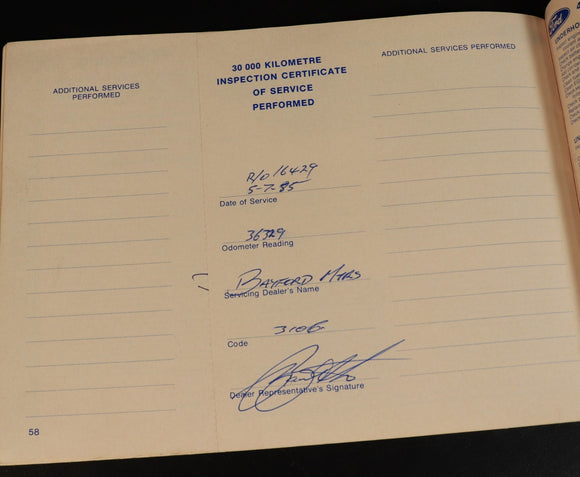 ADDITIONAL SERVICES
PERFORMED
30 000 KILOMETRE
INSPECTION CERTIFICATE
OF SERVICE
PERFORMED
R/O 16429
5-7-85
Date of Service
36329
Odometer Reading
BAYFORD MTRS
Servicing Dealer's Name
310G
Code
Dealer Representative's Signature
ADDITIONAL SERVICES PERFORMED
58
Ford